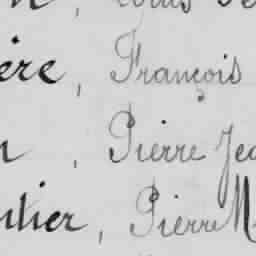 ère, François
, Pierre Jea
utier, Pierre M